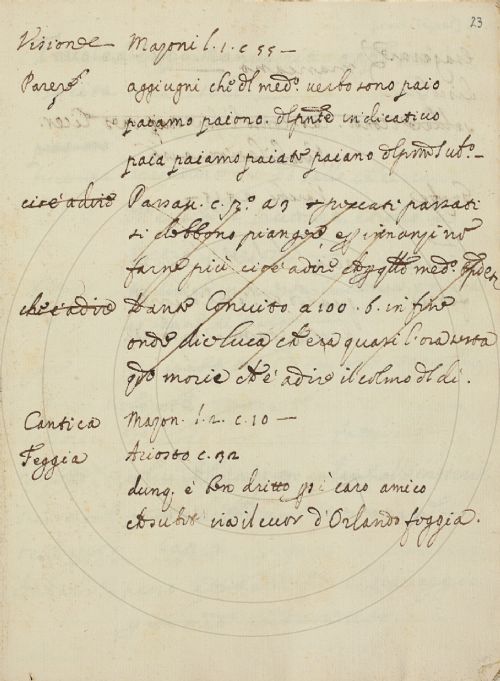 23
Visione Mazoni l. 1. c 55 —
Parere aggiugni che dl med.º verbo sono paio
paiamo paiono. dl pnte indicativo
paia paiamo paiate paiano dl pnte
cioè a dire Passau. c. 3.º a 9 peccati passati
si debbono piangere, et innanzi nõ
farne più cioè a dire med.º
che è a dire Dante Convito a 100. b. in fine
onde dice Luca che era quasi l'ora sesta
qdo morie che è a dire il colmo dl dì.
Cantica Mazon. l. 2. c. 10 —
Feggia Ariosto c. 32
dunq. è ben dritto caro amico
via il cuor d'Orlando foggia.